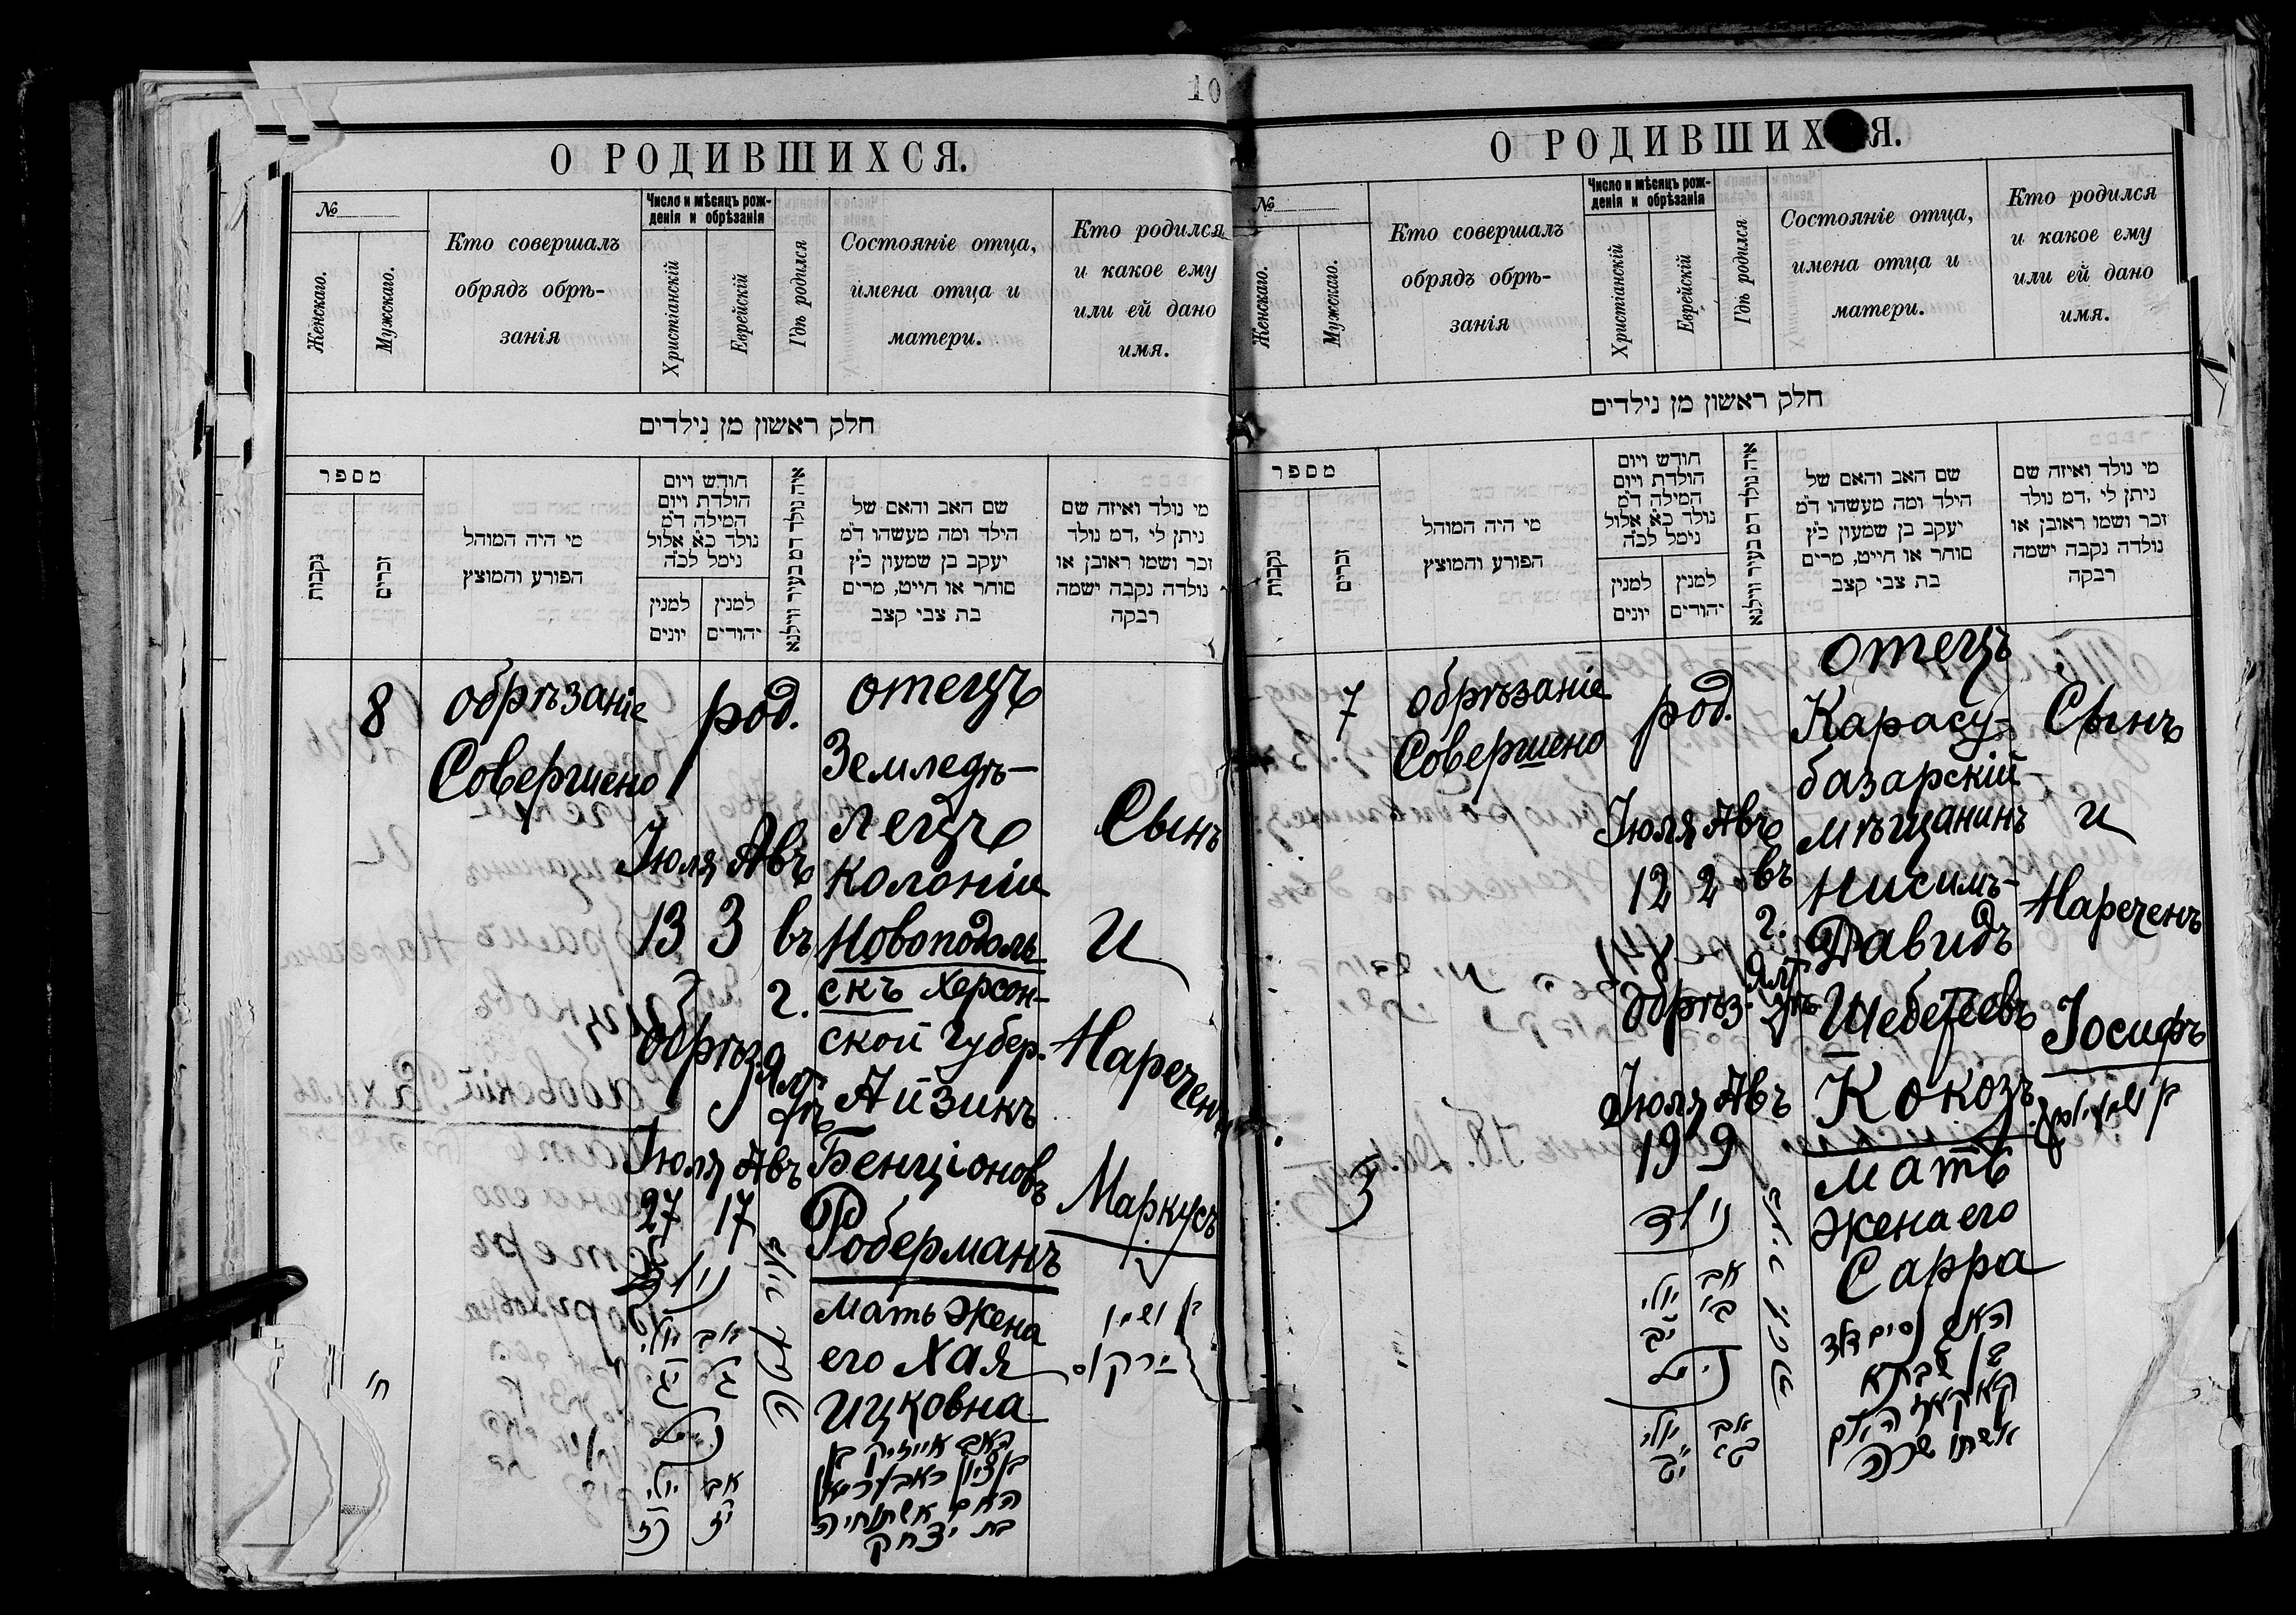 10
О РОДИВШИХСЯ.
№
Женскаго.
Мужскаго.
Кто совершалъ
обрядъ обрѣ-
занія
Число и мѣсяцъ рож-
денія и обрѣзанія
Христіанскій
Еврейскій
Гдѣ родился
Состояніе отца,
имена отца и
матери.
Кто родился
и какое ему
или ей дано
имя.
חלק ראשון מן נילדים
מספר
נקבות
זכרים
מי היה המוהל
הפורע והמוצץ
חודש ויום
הולדת ויום
המילה ד״מ
נולד כ״א אלול
נימל לכ״ה
למנין
יונים
למנין
יהודים
איה נולד דמ בעיר ווילנא
שם האב והאם של
הילד ומה מעשהו ד״מ
יעקב בן שמעון כ״ץ
סוחר או חייט, מרים
בת צבי קצב
מי נולד ואיזה שם
ניתן לי ,דמ נולד
זכר ושמו ראובן או
נולדה נקבה ישמה
רבקה
8
обрѣзаніе
Совершено
род.
Іюля Авъ
13 3
обрѣз.
Іюля Авъ
27 17
נולד
יולי אב
יג ג
נימל
יולי אב
כז יז
въ
г.
Ял
тѣ
отецъ
Земледѣ-
лецъ
колоніи
Новоподоль
скъ Херсон-
ской губер.
Айзикъ
Бенціоновъ
Роберманъ
мать жена
его Хая
Ицковна
האב אייזיק בן
בן ציון ראבערמאן
האם אשתו חיה
בת יצחק
Сынъ
и
Нареченъ
Маркусъ
בן ושמו
מרקוס
ח׳
О РОДИВШИХСЯ.
№
Женскаго.
Мужскаго.
Кто совершалъ
обрядъ обрѣ-
занія
Число и мѣсяцъ рож-
денія и обрѣзанія
Христіанскій
Еврейскій
Гдѣ родился
Состояніе отца,
имена отца и
матери.
Кто родился
и какое ему
или ей дано
имя.
חלק ראשון מן נילדים
מספר
נקבות
זכרים
מי היה המוהל
הפורע והמוצץ
חודש ויום
הולדת ויום
המילה ד״מ
נולד כ״א אלול
נימל לכ״ה
למנין
יונים
למנין
יהודים
איה נולד דמ בעיר ווילנא
שם האב והאם של
הילד ומה מעשהו ד״מ
יעקב בן שמעון כ״ץ
סוחר או חייט, מרים
בת צבי קצב
מי נולד ואיזה שם
ניתן לי ,דמ נולד
זכר ושמו ראובן או
נולדה נקבה ישמה
רבקה
7
обрѣзаніе
Совершено
род.
Іюля Авъ
12 2
обрѣз.
Іюля Авъ
19 9
נולד
יולי אב
יב ב׳
נימל
יולי אב
יט ט׳
въ
г.
Ял
тѣ
отецъ
Карасу-
базарскій
мѣщанинъ
Нисимъ-
Давидъ
Шебетеевъ
Кокозъ
мать
жена его
Сарра
האב נסים דוד
בן שבתא
קאקאז האם
אשתו שרה
Сынъ
и
Нареченъ
Іосифъ